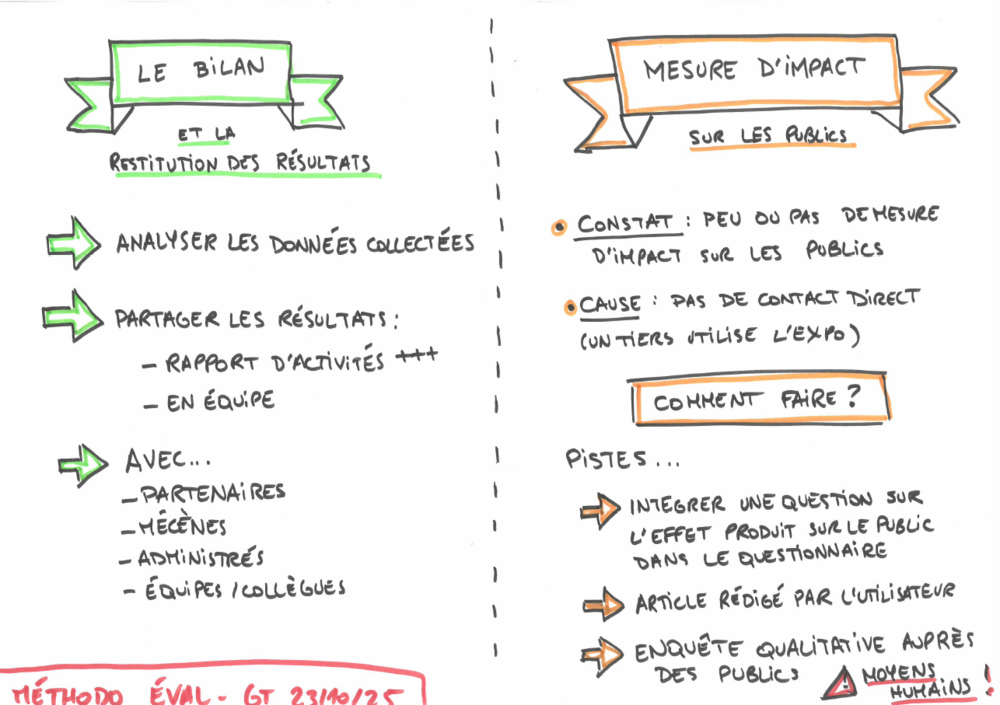 LE BILAN
ET LA
RESTITUTION DES RÉSULTATS
ANALYSER LES DONNÉES COLLECTÉES
PARTAGER LES RÉSULTATS :
- RAPPORT D'ACTIVITÉS +++
- EN ÉQUIPE
AVEC...
- PARTENAIRES
- MÉCÈNES
- ADMINISTRÉS
- ÉQUIPES / COLLÈGUES
MÉTHODO ÉVAL - GT 23/10/25
MESURE D'IMPACT
SUR LES PUBLICS
CONSTAT : PEU OU PAS DE MESURE
D'IMPACT SUR LES PUBLICS
CAUSE : PAS DE CONTACT DIRECT
(UN TIERS UTILISE L'EXPO)
COMMENT FAIRE ?
PISTES...
INTEGRER UNE QUESTION SUR
L'EFFET PRODUIT SUR LE PUBLIC
DANS LE QUESTIONNAIRE
ARTICLE RÉDIGÉ PAR L'UTILISATEUR
ENQUÊTE QUALITATIVE AUPRÈS
DES PUBLICS
! MOYENS
HUMAINS !